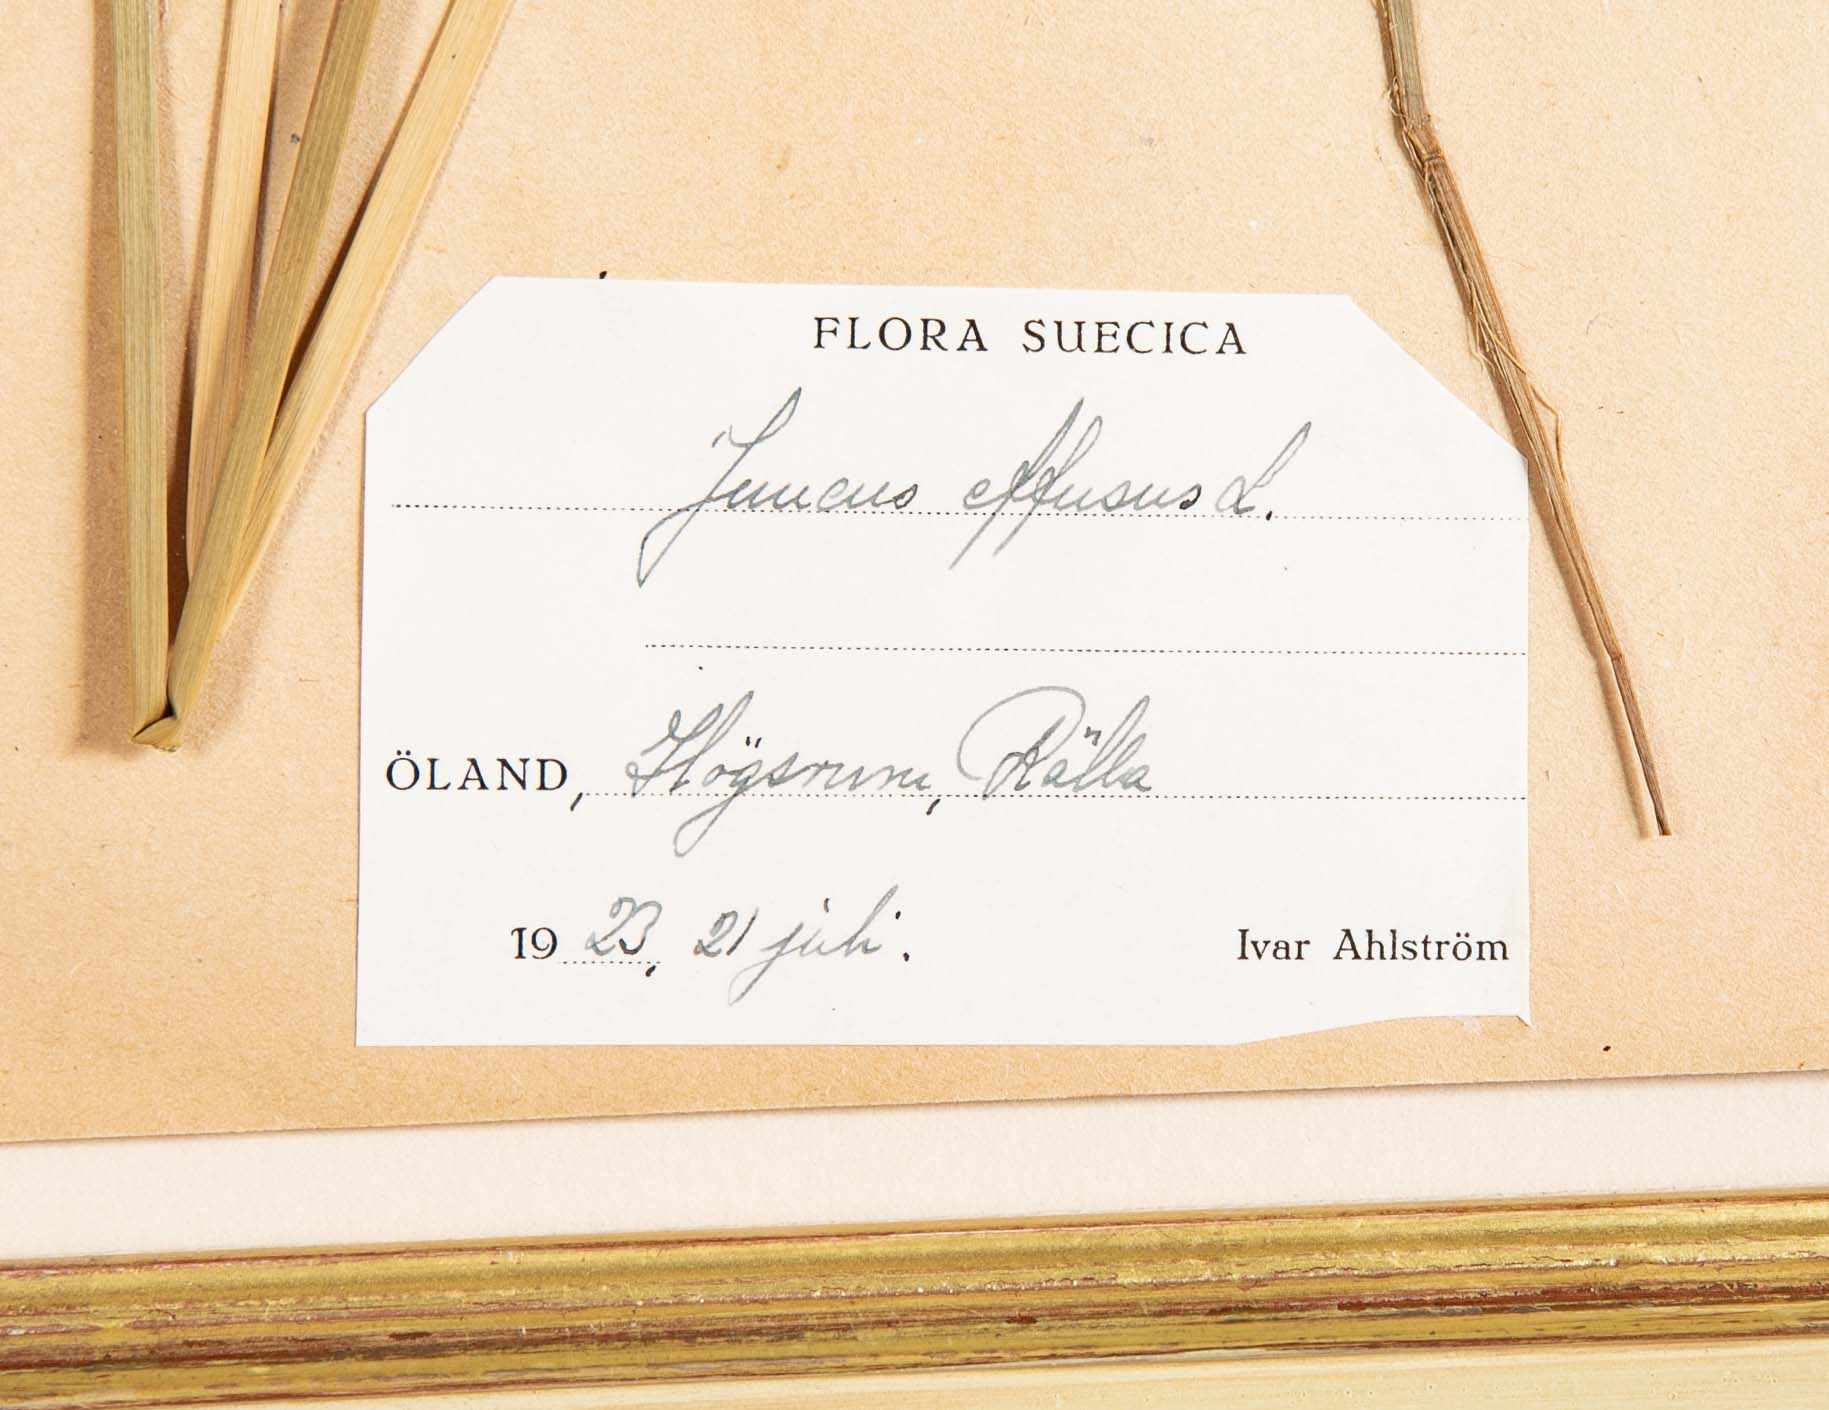 FLORA SUECICA
Juncus effusus L.
ÖLAND, Högsrum, Rälla
1923, 21 juli. Ivar Ahlström